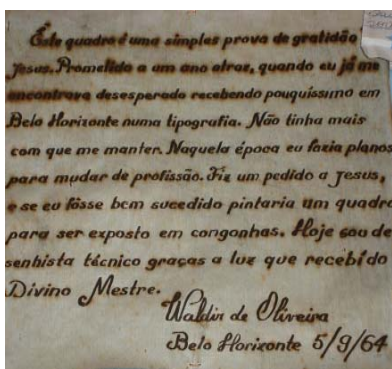 Êste quadro é uma simples prova de gratidão
Jesus. Prometido a um ano atraz, quando eu já me
encontrava desesperado recebendo pouquíssimo em
Belo Horizonte numa tipografia. Não tinha mais
com que me manter. Naquela época eu fazia planos
para mudar de profissão. Fiz um pedido a Jesus,
e se eu fôsse bem sucedido pintaria um quadro
para ser exposto em congonhas. Hoje sou de
senhista técnico graças a luz que recebi do
Divino Mestre.
Waldir de Oliveira
Belo Horizonte 5/9/64